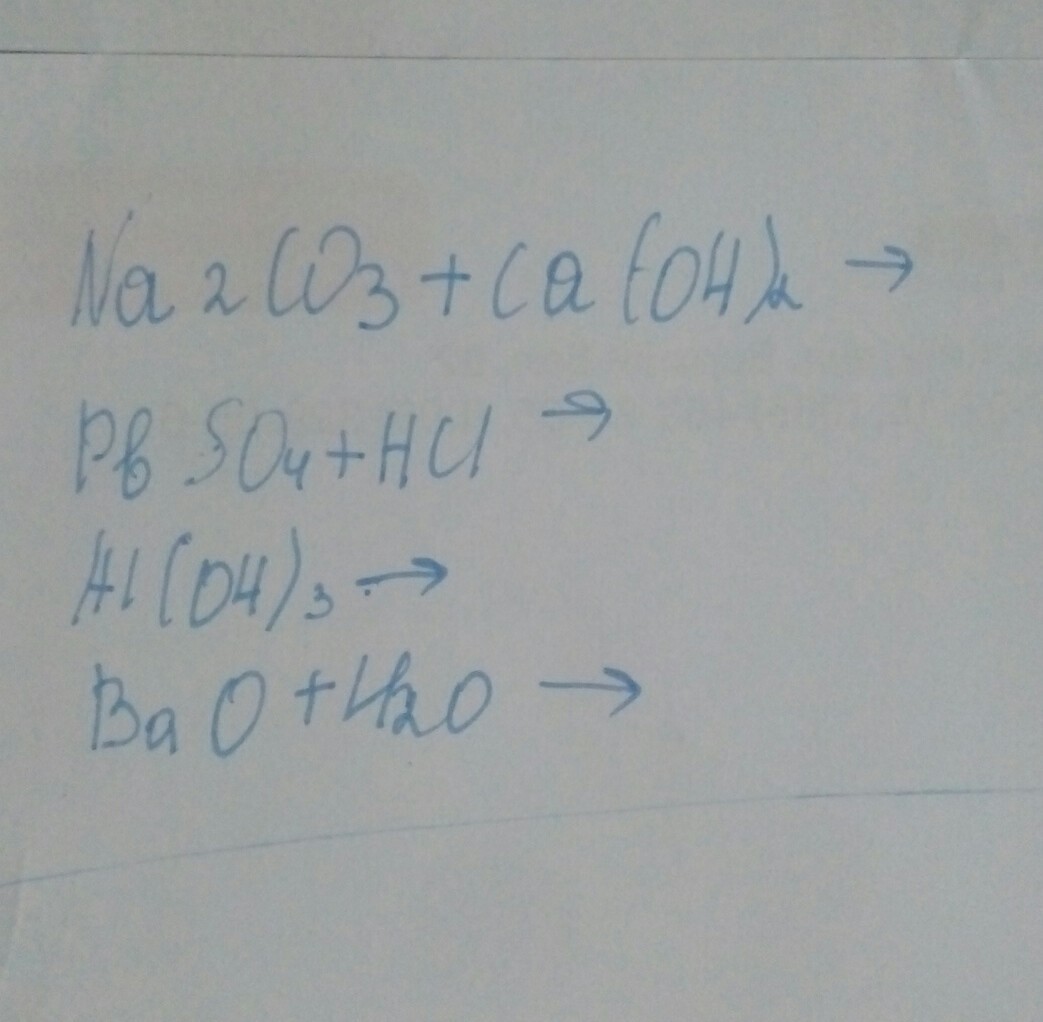 Na2CO3 + Ca(OH)2 →
PbSO4 + HCl →
Al(OH)3 →
BaO + H2O →